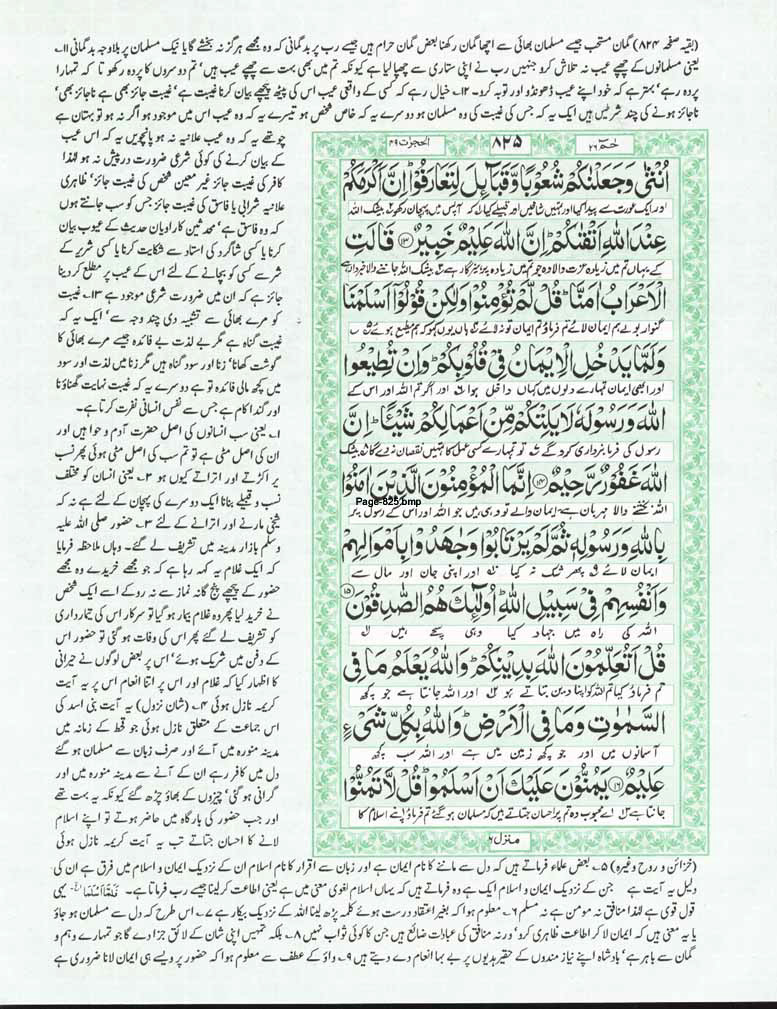 (بقیہ صفحہ ۸۲۴) گمان مستحب جیسے مسلمان بھائی سے اچھا گمان رکھنا بعض گمان حرام ہیں جیسے رب پر بدگمانی کہ وہ مجھے ہرگز نہ بخشے گا یا نیک مسلمان پر بلاوجہ بدگمانی ۱۱؎
یعنی مسلمانوں کے چھپے عیب نہ تلاش کرو جنہیں رب نے اپنی ستاری سے چھپا لیا ہے کیونکہ تم میں بھی بہت سے چھپے عیب ہیں، تم دوسروں کا پردہ رکھو تا کہ تمہارا
پردہ رہے، بہتر ہے کہ خود اپنے عیب ڈھونڈو اور توبہ کرو۔ ۱۲؎ خیال رہے کہ کسی کے واقعی عیب اس کی پیٹھ پیچھے بیان کرنا غیبت ہے، غیبت جائز بھی ہے ناجائز بھی،
ناجائز ہونے کی چند شرطیں ہیں ایک یہ کہ جس کی غیبت کی وہ مسلمان ہو دوسرے یہ کہ خاص شخص ہو تیسرے یہ کہ وہ عیب اس میں موجود ہو اگر نہ ہو تو بہتان ہے
چوتھے یہ کہ وہ عیب علانیہ نہ ہو پانچویں یہ کہ اس عیب
کے بیان کرنے کی کوئی شرعی ضرورت درپیش نہ ہو لہٰذا
کافر کی غیبت جائز غیر معین شخص کی غیبت جائز، ظاہری
علانیہ شرابی یا فاسق کی غیبت جائز جس کو سب جانتے ہوں
کہ وہ فاسق ہے، محدثین کا راویان حدیث کے عیوب بیان
کرنا یا کسی شاگرد کی استاد سے شکایت کرنا یا کسی شریر کے
شر سے کسی کو بچانے کے لئے اس کے عیب پر مطلع کر دینا
جائز ہے کہ ان میں ضرورت شرعی موجود ہے ۱۳؎ غیبت
کو مرے بھائی سے تشبیہ دی چند وجہ سے، ایک یہ کہ
غیبت گناہ ہے مگر بے لذت بے فائدہ جیسے مرے بھائی کا
گوشت کھانا، زنا اور سود گناہ ہیں مگر زنا میں لذت اور سود
میں کچھ مالی فائدہ تو ہے دوسرے یہ کہ غیبت نہایت گھناؤنا
اور گندا کام ہے جس سے نفس انسانی نفرت کرتا ہے۔
۱؎ یعنی سب انسانوں کی اصل حضرت آدم و حوا ہیں اور
ان کی اصل مٹی ہے تو تم سب کی اصل مٹی ہوئی پھر نسب
پر اکڑتے اور اتراتے کیوں ہو ۲؎ یعنی انسان کو مختلف
نسب و قبیلے بنانا ایک دوسرے کی پہچان کے لئے ہے نہ کہ
شیخی مارنے اور اترانے کے لئے ۳؎ حضور صلی اللہ علیہ
وسلم بازار مدینہ میں تشریف لے گئے۔ وہاں ملاحظہ فرمایا
کہ ایک غلام یہ کہہ رہا ہے کہ جو مجھے خریدے وہ مجھے
حضور کے پیچھے پنج گانہ نماز سے نہ روکے اسے ایک شخص
نے خرید لیا پھر وہ غلام بیمار ہو گیا تو سرکار اس کی تیمارداری
کو تشریف لے گئے پھر اس کی وفات ہو گئی تو حضور اس
کے دفن میں شریک ہوئے، اس پر بعض لوگوں نے حیرانی
کا اظہار کیا کہ غلام اور اس پر اتنا انعام اس پر یہ آیت
کریمہ نازل ہوئی ۴؎ (شان نزول) یہ آیت بنی اسد کی
اس جماعت کے متعلق نازل ہوئی جو قحط کے زمانہ میں
مدینہ منورہ میں آئے اور صرف زبان سے مسلمان ہو گئے
دل میں کافر رہے ان کے آنے سے مدینہ منورہ میں
گرانی ہو گئی، چیزوں کے بھاؤ چڑھ گئے کیونکہ یہ بہت تھے
اور جب حضور کی بارگاہ میں حاضر ہوتے تو اپنے اسلام
لانے کا احسان جتاتے تب یہ آیت کریمہ نازل ہوئی
الحجرت ۴۹
۸۲۵
حٰمٓ ۲۶
اُنْثٰى وَجَعَلْنٰكُمْ شُعُوْبًا وَّقَبَآئِلَ لِتَعَارَفُوْاؕ اِنَّ اَكْرَمَكُمْ
اور ایک عورت سے پیدا کیا اور تمہیں شاخیں اور قبیلے کیا کہ آپس میں پہچان رکھو بیشک اللہ
عِنْدَ اللّٰهِ اَتْقٰىكُمْؕ اِنَّ اللّٰهَ عَلِيْمٌ خَبِيْرٌ ۝۱۳ قَالَتِ
کے یہاں تم میں زیادہ عزت والا وہ جو تم میں زیادہ پرہیزگار ہے بیشک اللہ جاننے والا خبردار ہے
الْاَعْرَابُ اٰمَنَّاؕ قُلْ لَّمْ تُؤْمِنُوْا وَلٰكِنْ قُوْلُوْۤا اَسْلَمْنَا
گنوار بولے ہم ایمان لائے تم فرماؤ تم ایمان تو نہ لائے ہاں یوں کہو کہ ہم مطیع ہوئے
وَلَمَّا يَدْخُلِ الْاِيْمَانُ فِىْ قُلُوْبِكُمْؕ وَاِنْ تُطِيْعُوا
اور ابھی ایمان تمہارے دلوں میں کہاں داخل ہوا اور اگر تم اللہ اور اس کے
اللّٰهَ وَرَسُوْلَهٗ لَا يَلِتْكُمْ مِّنْ اَعْمَالِكُمْ شَيْـًٔاؕ اِنَّ
رسول کی فرمانبرداری کرو گے تو تمہارے کسی عمل کا تمہیں نقصان نہ دے گا بیشک
اللّٰهَ غَفُوْرٌ رَّحِيْمٌ ۝۱۴ اِنَّمَا الْمُؤْمِنُوْنَ الَّذِيْنَ اٰمَنُوْا
Page-825.bmp
اللہ بخشنے والا مہربان ہے ایمان والے تو وہی ہیں جو اللہ اور اس کے رسول پر
بِاللّٰهِ وَرَسُوْلِهٖ ثُمَّ لَمْ يَرْتَابُوْا وَجٰهَدُوْا بِاَمْوَالِهِمْ
ایمان لائے پھر شک نہ کیا اور اپنی جان اور مال سے
وَاَنْفُسِهِمْ فِىْ سَبِيْلِ اللّٰهِؕ اُولٰٓئِكَ هُمُ الصّٰدِقُوْنَ ۝۱۵
اللہ کی راہ میں جہاد کیا وہی سچے ہیں
قُلْ اَتُعَلِّمُوْنَ اللّٰهَ بِدِيْنِكُمْؕ وَاللّٰهُ يَعْلَمُ مَا فِى
تم فرماؤ کیا تم اللہ کو اپنا دین بتاتے ہو اور اللہ جانتا ہے جو کچھ
السَّمٰوٰتِ وَمَا فِى الْاَرْضِؕ وَاللّٰهُ بِكُلِّ شَىْءٍ
آسمانوں میں اور جو کچھ زمین میں ہے اور اللہ سب کچھ
عَلِيْمٌ ۝۱۶ يَمُنُّوْنَ عَلَيْكَ اَنْ اَسْلَمُوْاؕ قُلْ لَّا تَمُنُّوْا
جانتا ہے اے محبوب وہ تم پر احسان جتاتے ہیں کہ مسلمان ہو گئے تم فرماؤ اپنے اسلام کا
منزل ۶
(خزائن و روح وغیرہ) ۵؎ بعض علماء فرماتے ہیں کہ دل سے ماننے کا نام ایمان ہے اور زبان سے اقرار کا نام اسلام ان کے نزدیک ایمان و اسلام میں فرق ہے ان کی
دلیل یہ آیت ہے جن کے نزدیک ایمان و اسلام ایک ہے وہ فرماتے ہیں کہ یہاں اسلام لغوی معنی میں ہے یعنی اطاعت کر لینا جیسے رب فرماتا ہے۔ فَلَمَّآ اَسْلَمَا یہی
قول قوی ہے لہٰذا منافق نہ مومن ہے نہ مسلم ۶؎ معلوم ہوا کہ بغیر اعتقاد درست ہوئے کلمہ پڑھ لینا اللہ کے نزدیک بیکار ہے ۷؎ اس طرح کہ دل سے مسلمان ہو جاؤ
یا یہ معنی ہیں کہ ایمان لا کر اطاعت ظاہری کرو، ورنہ منافق کی عبادات ضائع ہیں جن کا کوئی ثواب نہیں ۸؎ بلکہ تمہیں اپنی شان کے لائق جزا دے گا جو تمہارے وہم و
گمان سے باہر ہے، بادشاہ اپنے نیاز مندوں کے حقیر ہدیوں پر بے بہا انعام دے دیتے ہیں ۹؎ واؤ کے عطف سے معلوم ہوا کہ حضور پر ویسے ہی ایمان لانا ضروری ہے